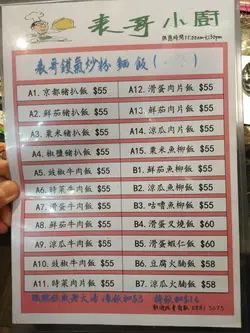 表哥小廚
供應時間11:00am-6:30pm
表哥鑊氣炒粉麵飯
A1. 京都豬扒飯 $55
A12. 滑蛋肉片飯 $55
A2. 鮮茄豬扒飯 $55
A13. 鮮茄肉片飯 $55
A3. 粟米豬扒飯 $55
A14. 涼瓜肉片飯 $55
A4. 椒鹽豬扒飯 $55
A15. 粟米魚柳飯 $55
A5. 豉椒牛肉飯 $55
B1. 鮮茄魚柳飯 $55
A6. 時菜牛肉飯 $55
B2. 涼瓜魚柳飯 $55
A7. 滑蛋牛肉飯 $55
B3. 咕嚕魚柳飯 $55
A8. 鮮茄牛肉飯 $55
B4. 滑蛋叉燒飯 $60
A9. 涼瓜牛肉飯 $55
B5. 滑蛋蝦仁飯 $60
A10. 豉椒肉片飯 $55
B6. 豆腐火腩飯 $58
A11. 時菜肉片飯 $55
B7. 涼瓜火腩飯 $58